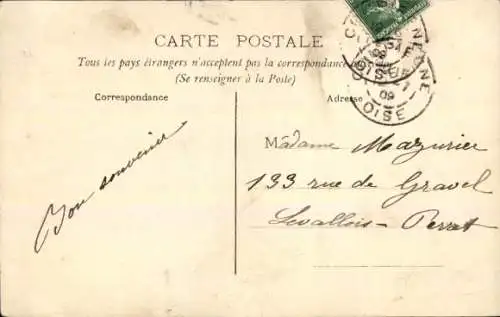 CARTE POSTALE
Tous les pays étrangers n'acceptent pas la correspondance
(Se renseigner à la Poste)
Correspondance
Adresse
OISE
09
Bon souvenir
Madame Mazurier
133 rue de Gravel
Levallois-Perret